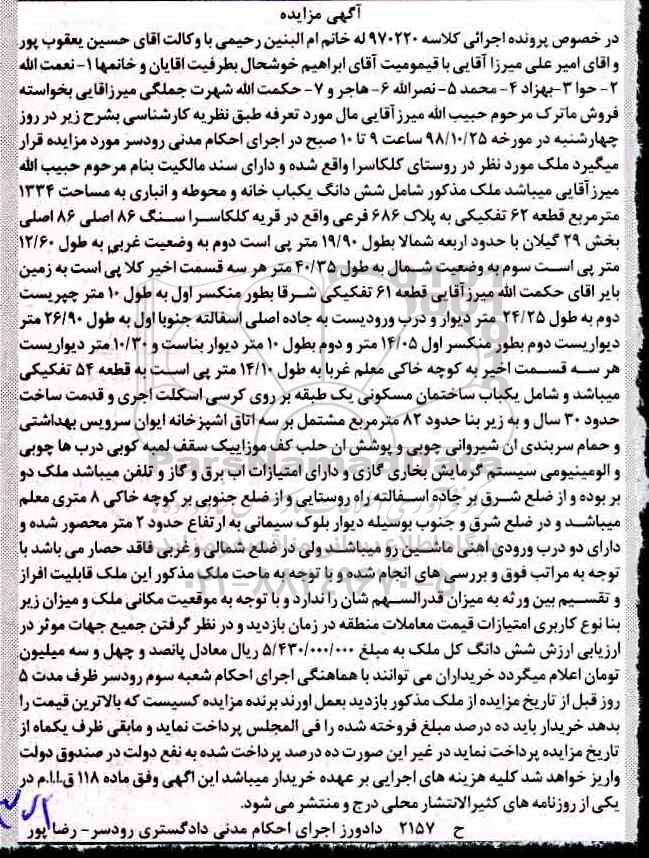 آگهی مزایده
در خصوص پرونده اجرائی کلاسه ۹۷۰۲۲۰ له خانم ام البنین رحیمی با وکالت اقای حسین یعقوب پور
و اقای امیر علی میرزا آقایی با قیمومیت آقای ابراهیم خوشحال بطرفیت اقایان و خانمها ۱- نعمت الله
۲- حوا ۳-بهزاد ۴- محمد ۵- نصرالله ۶- هاجر و ۷- حکمت الله شهرت جملگی میرزاقایی بخواسته
فروش ماترک مرحوم حبیب الله میرزآقایی مال مورد تعرفه طبق نظریه کارشناسی بشرح زیر در روز
چهارشنبه در مورخه ۹۸/۱۰/۲۵ ساعت ۹ تا ۱۰ صبح در اجرای احکام مدنی رودسر مورد مزایده قرار
میگیرد ملک مورد نظر در روستای کلکاسرا واقع شده و دارای سند مالکیت بنام مرحوم حبیب الله
میرزآقایی میباشد ملک مذکور شامل شش دانگ یکباب خانه و محوطه و انباری به مساحت ۱۳۳۴
مترمربع قطعه ۶۲ تفکیکی به پلاک ۶۸۶ فرعی واقع در قریه کلکاسرا سنگ ۸۶ اصلی ۸۶ اصلی
بخش ۲۹ گیلان با حدود اربعه شمالا بطول ۱۹/۹۰ متر پی است دوم به وضعیت غربی به طول ۱۲/۶۰
متر پی است سوم به وضعیت شمال به طول ۴۰/۳۵ متر هر سه قسمت اخیر کلا پی است به زمین
بایر اقای حکمت الله میرزآقایی قطعه ۶۱ تفکیکی شرقا بطور منکسر اول به طول ۱۰ متر چپریست
دوم به طول ۲۴/۲۵ متر دیوار و درب ورودیست به جاده اصلی اسفالته جنوبا اول به طول ۲۶/۹۰ متر
دیواریست دوم بطور منکسر اول ۱۴/۰۵ متر و دوم بطول ۱۰ متر دیوار بناست و ۱۰/۳۰ متر دیواریست
هر سه قسمت اخیر به کوچه خاکی معلم غربا به طول ۱۴/۱۰ متر پی است به قطعه ۵۴ تفکیکی
میباشد و شامل یکباب ساختمان مسکونی یک طبقه بر روی کرسی اسکلت اجری و قدمت ساخت
حدود ۳۰ سال و به زیر بنا حدود ۸۲ مترمربع مشتمل بر سه اتاق اشپزخانه ایوان سرویس بهداشتی
و حمام سربندی ان شیروانی چوبی و پوشش ان حلب کف موزاییک سقف لمبه کوبی درب ها چوبی
و الومینیومی سیستم گرمایش بخاری گازی و دارای امتیازات اب برق و گاز و تلفن میباشد ملک دو
بر بوده و از ضلع شرق بر جاده اسفالته راه روستایی و از ضلع جنوبی بر کوچه خاکی ۸ متری معلم
میباشد و در ضلع شرق و جنوب بوسیله دیوار بلوک سیمانی به ارتفاع حدود ۲ متر محصور شده و
دارای دو درب ورودی اهنی ماشین رو میباشد ولی در ضلع شمالی و غربی فاقد حصار می باشد با
توجه به مراتب فوق و بررسی های انجام شده و با توجه به ماحت ملک مذکور این ملک قابلیت افراز
و تقسیم بین ورثه به میزان قدرالسهم شان را ندارد و با توجه به موقعیت مکانی ملک و میزان زیر
بنا نوع کاربری امتیازات قیمت معاملات منطقه در زمان بازدید و در نظر گرفتن جمیع جهات موثر در
ارزیابی ارزش شش دانگ کل ملک به مبلغ ۵/۴۳۰/۰۰۰/۰۰۰ ریال معادل پانصد و چهل و سه میلیون
تومان اعلام میگردد خریداران می توانند با هماهنگی اجرای احکام شعبه سوم رودسر ظرف مدت ۵
روز قبل از تاریخ مزایده از ملک مذکور بازدید بعمل اورند برنده مزایده کسیست که بالاترین قیمت را
بدهد خریدار باید ده درصد مبلغ فروخته شده را فی المجلس پرداخت نماید و مابقی ظرف یکماه از
تاریخ مزایده پرداخت نماید در غیر این صورت ده درصد پرداخت شده به نفع دولت در صندوق دولت
واریز خواهد شد کلیه هزینه های اجرایی بر عهده خریدار میباشد این اگهی وفق ماده ۱۱۸ ق.ا.ا.م در
یکی از روزنامه های کثیرالانتشار محلی درج و منتشر می شود.
ح ۲۱۵۷ دادورز اجرای احکام مدنی دادگستری رودسر- رضا پور